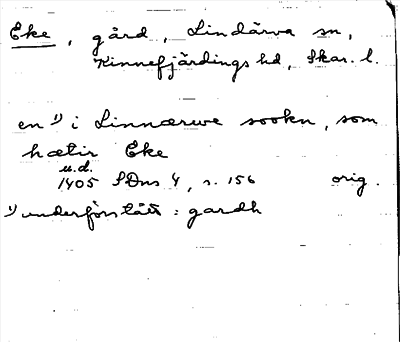 Eke, gård, Lindärva sn,
Kinnefjärdings hd, Skar. l.
en 1) i Linnærwe sookn, som
hætir Eke
u.d.
1405 SDns 4, s. 156 orig.
1) underförstått: gardh